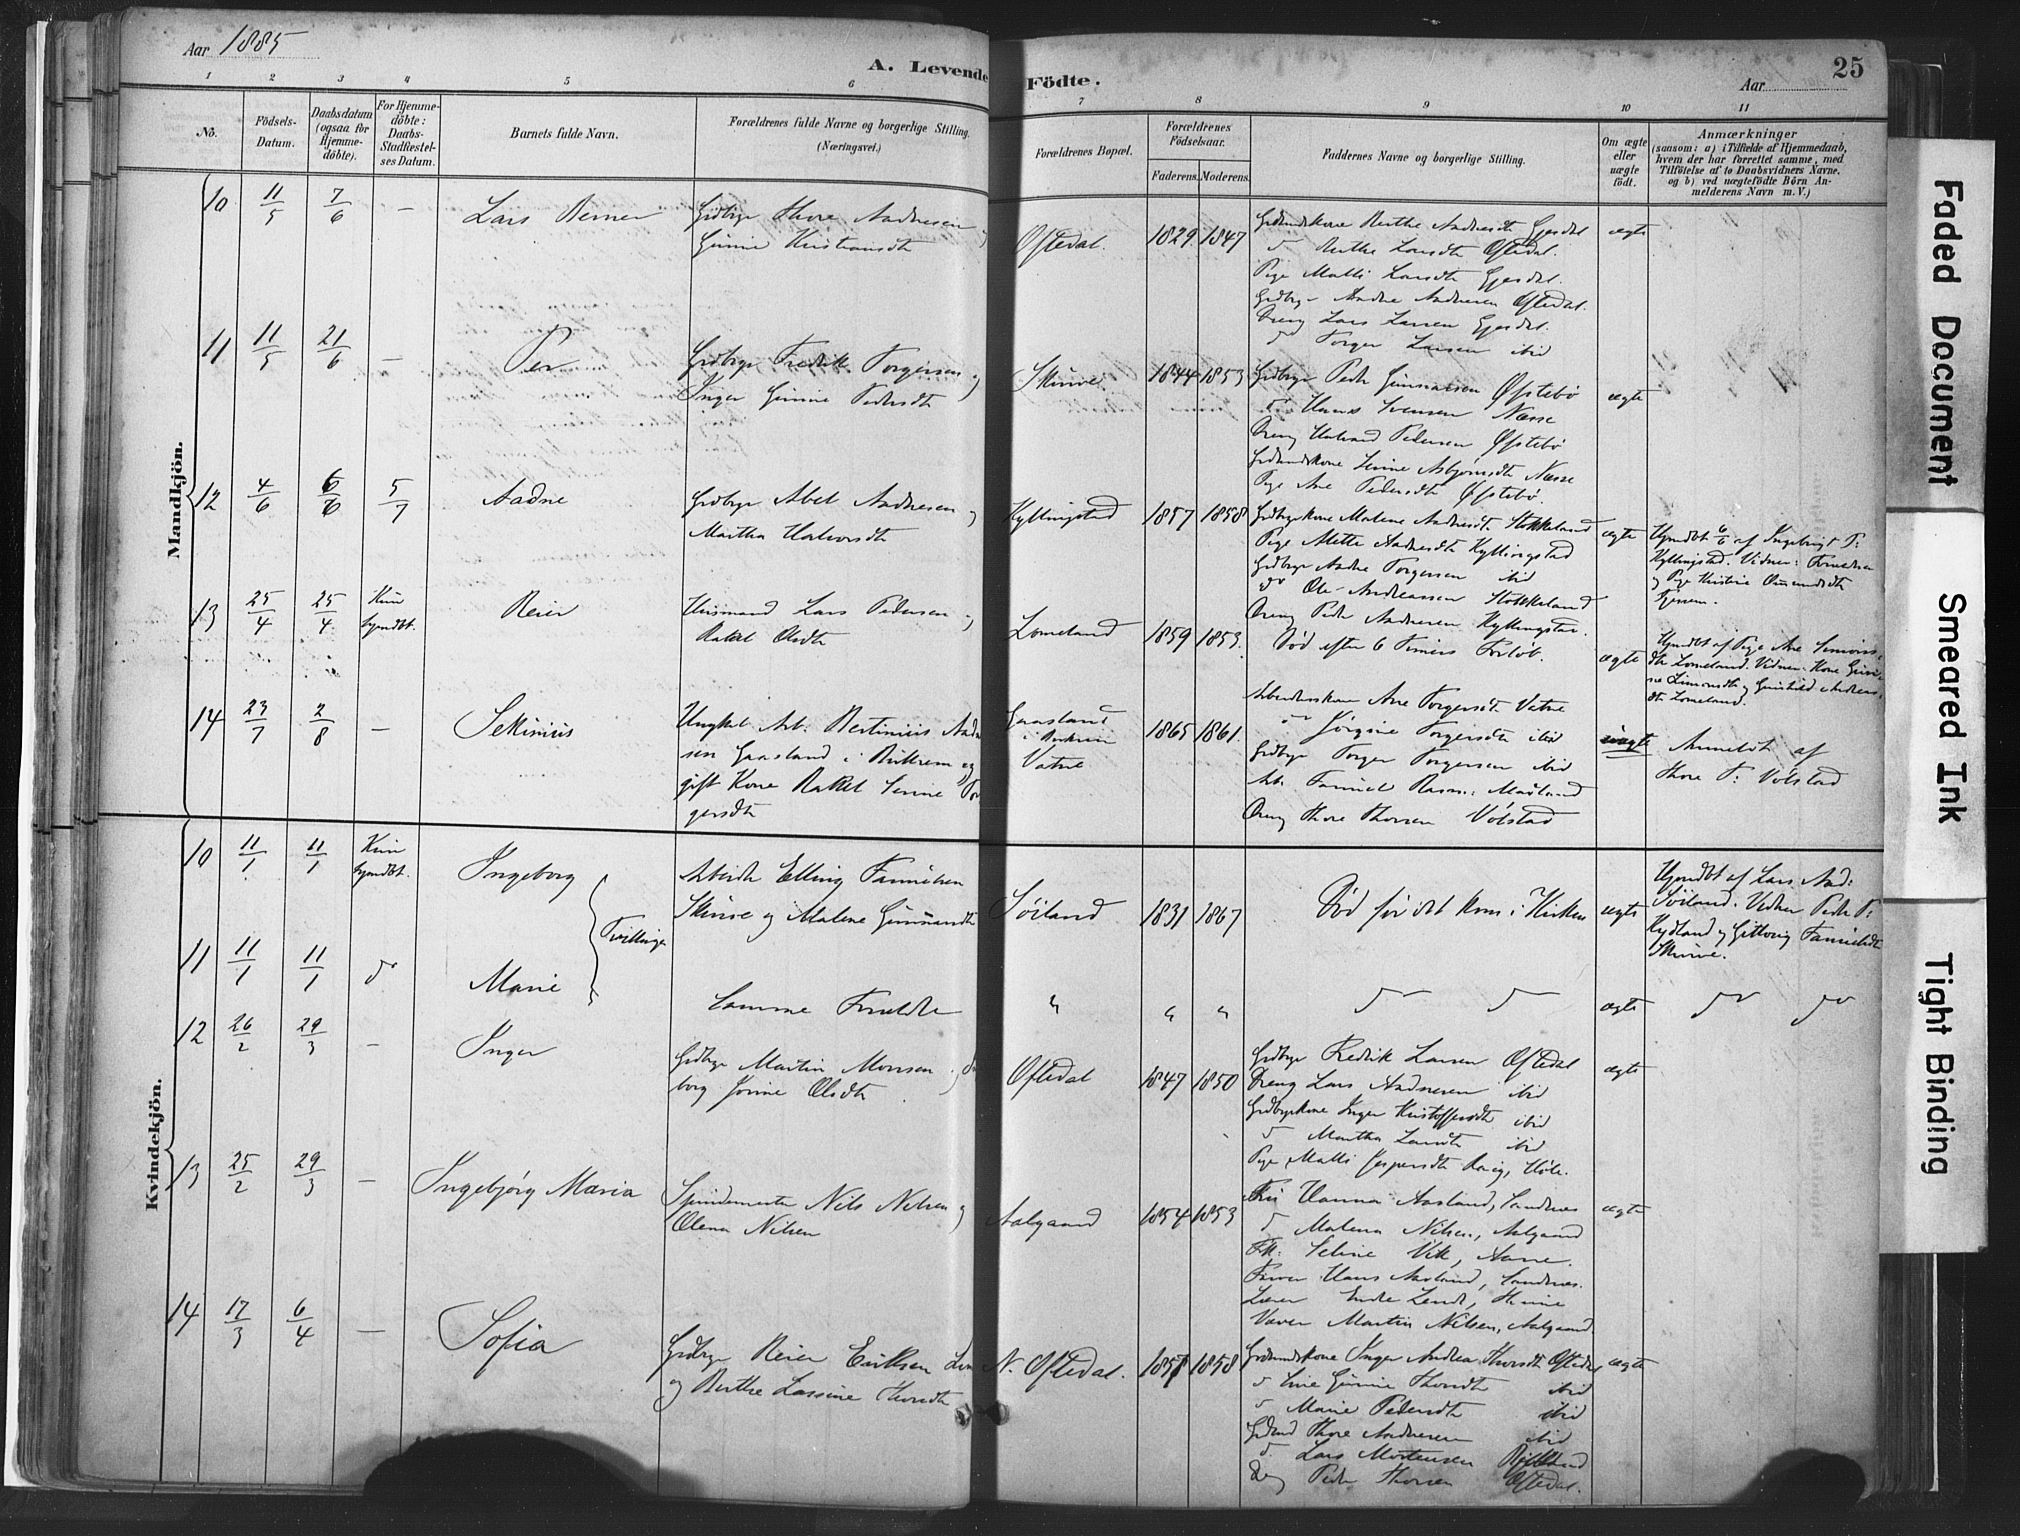 Aar 1885
A. Levende Födte.
Aar
25
1 2 3 4 5 6 7 8 9 10 11
No.
Födsels-Datum.
Daabsdatum (ogsaa for Hjemme-döbte).
For Hjemme-döbte: Daabs-Stadfæstel-ses Datum.
Barnets fulde Navn.
Forældrenes fulde Navne og borgerlige Stilling. (Næringsvei.)
Forældrenes Bopæl.
Forældrenes Födselsaar.
Faderens. Moderens.
Faddernes Navne og borgerlige Stilling.
Om ægte eller uægte födt.
Anmærkninger
(saasom: a) i Tilfælde af Hjemmedaab,
hvem der har forrettet samme, med
Tilföielse af to Daabsvidners Navne,
og b) ved uægtefödte Börn An-
melderens Navn m. V.)
Mandkjön.
10 11/5 7/6 — Lars Berner
Grdbrgr Thore Aadnesen
Gunne Kristiansdt
Oftedal. 1829 1847
Grdmdskone Berthe Aadnesdt Gjesdal
do Berthe Larsdt Oftedal.
Pige Malli Larsdt Gjesdal.
Grdbrgr Aadne Aadnesen Oftedal.
Dreng Lars Larsen Gjesdal.
do Torger Larsen ibid
ægte
11 11/5 21/6 — Per
Grdbrgr Fredrik Torgersen og
Inger Gunne Pedersdt
Skurve 1844 1853
Grdbrgr Peder Gunnarsen Øfstebø
do Hans Svensen Næsse
Dreng Halvard Pedersen Øfstebø
Grdmdskone Sinne Asbjørnsdt Næsse
Pige Ane Pedersdt Øfstebø.
ægte
12 4/6 6/6 5/7 Aadne
Grdbrgr Abel Aadnesen og
Martha Halvorsdt
Kyllingstad 1857 1858
Grdbrgrkone Malene Aadnesdt. Stokkeland
Pige Mette Aadnesdt Kyllingstad
Grdbrgr Aadne Torgersen ibid
do Ole Andreassen Stokkeland
Dreng Peder Aadnesen Kyllingstad.
ægte
Hjmdbt 6/6 af Ingebrigt T:
Kyllingstad. Vidner: Formeddre
og Pige Kistine Ommundsdt
13 25/4 25/4 Kun hjmdbt. Reier
Husmand Lars Pedersen og
Rakel Olsdt
Lomeland 1859 1853.
Død efter 6 Timers Forløb.
ægte
Hjmdbt af Pige Ane Simons-
dt Lomeland. Vidner. Kone Guri-
ne Simonsdt og Gunhild Andreas-
dt Lomeland.
14 23/7 2/8 — Sekinius
Ungkal Arb: Bertinius Aadne
sen Gaasland i Birkrem og
gift Kone Rakel Serine Tor
gersdt
Gaasland
i Birkrem
Vatne
1865 1861.
Arbeiderskone Ane Torgersdt Vatne
do Jørgine Torgersdt ibid
Grdbrgr Torger Torgersen ibid
Arb: Tønnes Rasm: Madland
Dreng Thore Thorsen Vølstad
uægte
Anmeldt af
Thore T: Vølstad
Kvindekjön.
10 11/1 11/1 Kun hjmdbt. Ingeborg
Tvillinger
Arbeider Elling Tønnesen
Skurve og Malene Gunnarsdt
Søiland 1831 1867
Død før det kom i Kirken
ægte
Hjmdbt af Lars Aad:
Søiland. Vidner Peder P:
Kydland og Gitlovig
Skurve.
11 11/1 11/1 do Marie
Samme Forældre
" " " do do ægte do do
12 26/2 29/3 — Inger
Grdbrgr Martin Monsen
borg Jonine Olsdt
Oftedal 1847 1850
Grdbrgr Fredrik Larsen Oftedal
Dreng Lars Aadnesen ibid
Grdbrgrkone Inger Kristoffersdt ibid
do Martha Larsdt ibid
Pige Malli Jespersdt Høle.
ægte
13 25/2 29/3 — Ingebjørg Maria
Spindemester Nils Nilsen og
Olena Nilsen
Aalgaard 1854 1853
Fru Hanna Aasland, Sandnes
do Malena Nilsen, Aalgaard
Frk: Seline Vik,
Farver Hans Aasland, Sandnes.
Lærer Endre Lende,
Væver Martin Nilsen, Aalgaard
ægte
14 17/3 6/4 — Sofia
Grdbrgr Reier Eriksen
og Berthe Lassine Thorsdt
N. Oftedal. 1857 1858
Grdmdskone Inger Andrea Thorsdt Oftedal
do Sine Gunnie Thorsdt ibid
do Marie Pedersdt ibid
Grdmd Thore Aadnesen ibid
do Lars Mortensen
Dreng Peder Thorsen Oftedal.
ægte
Faded Document
Smeared Ink
Tight Binding